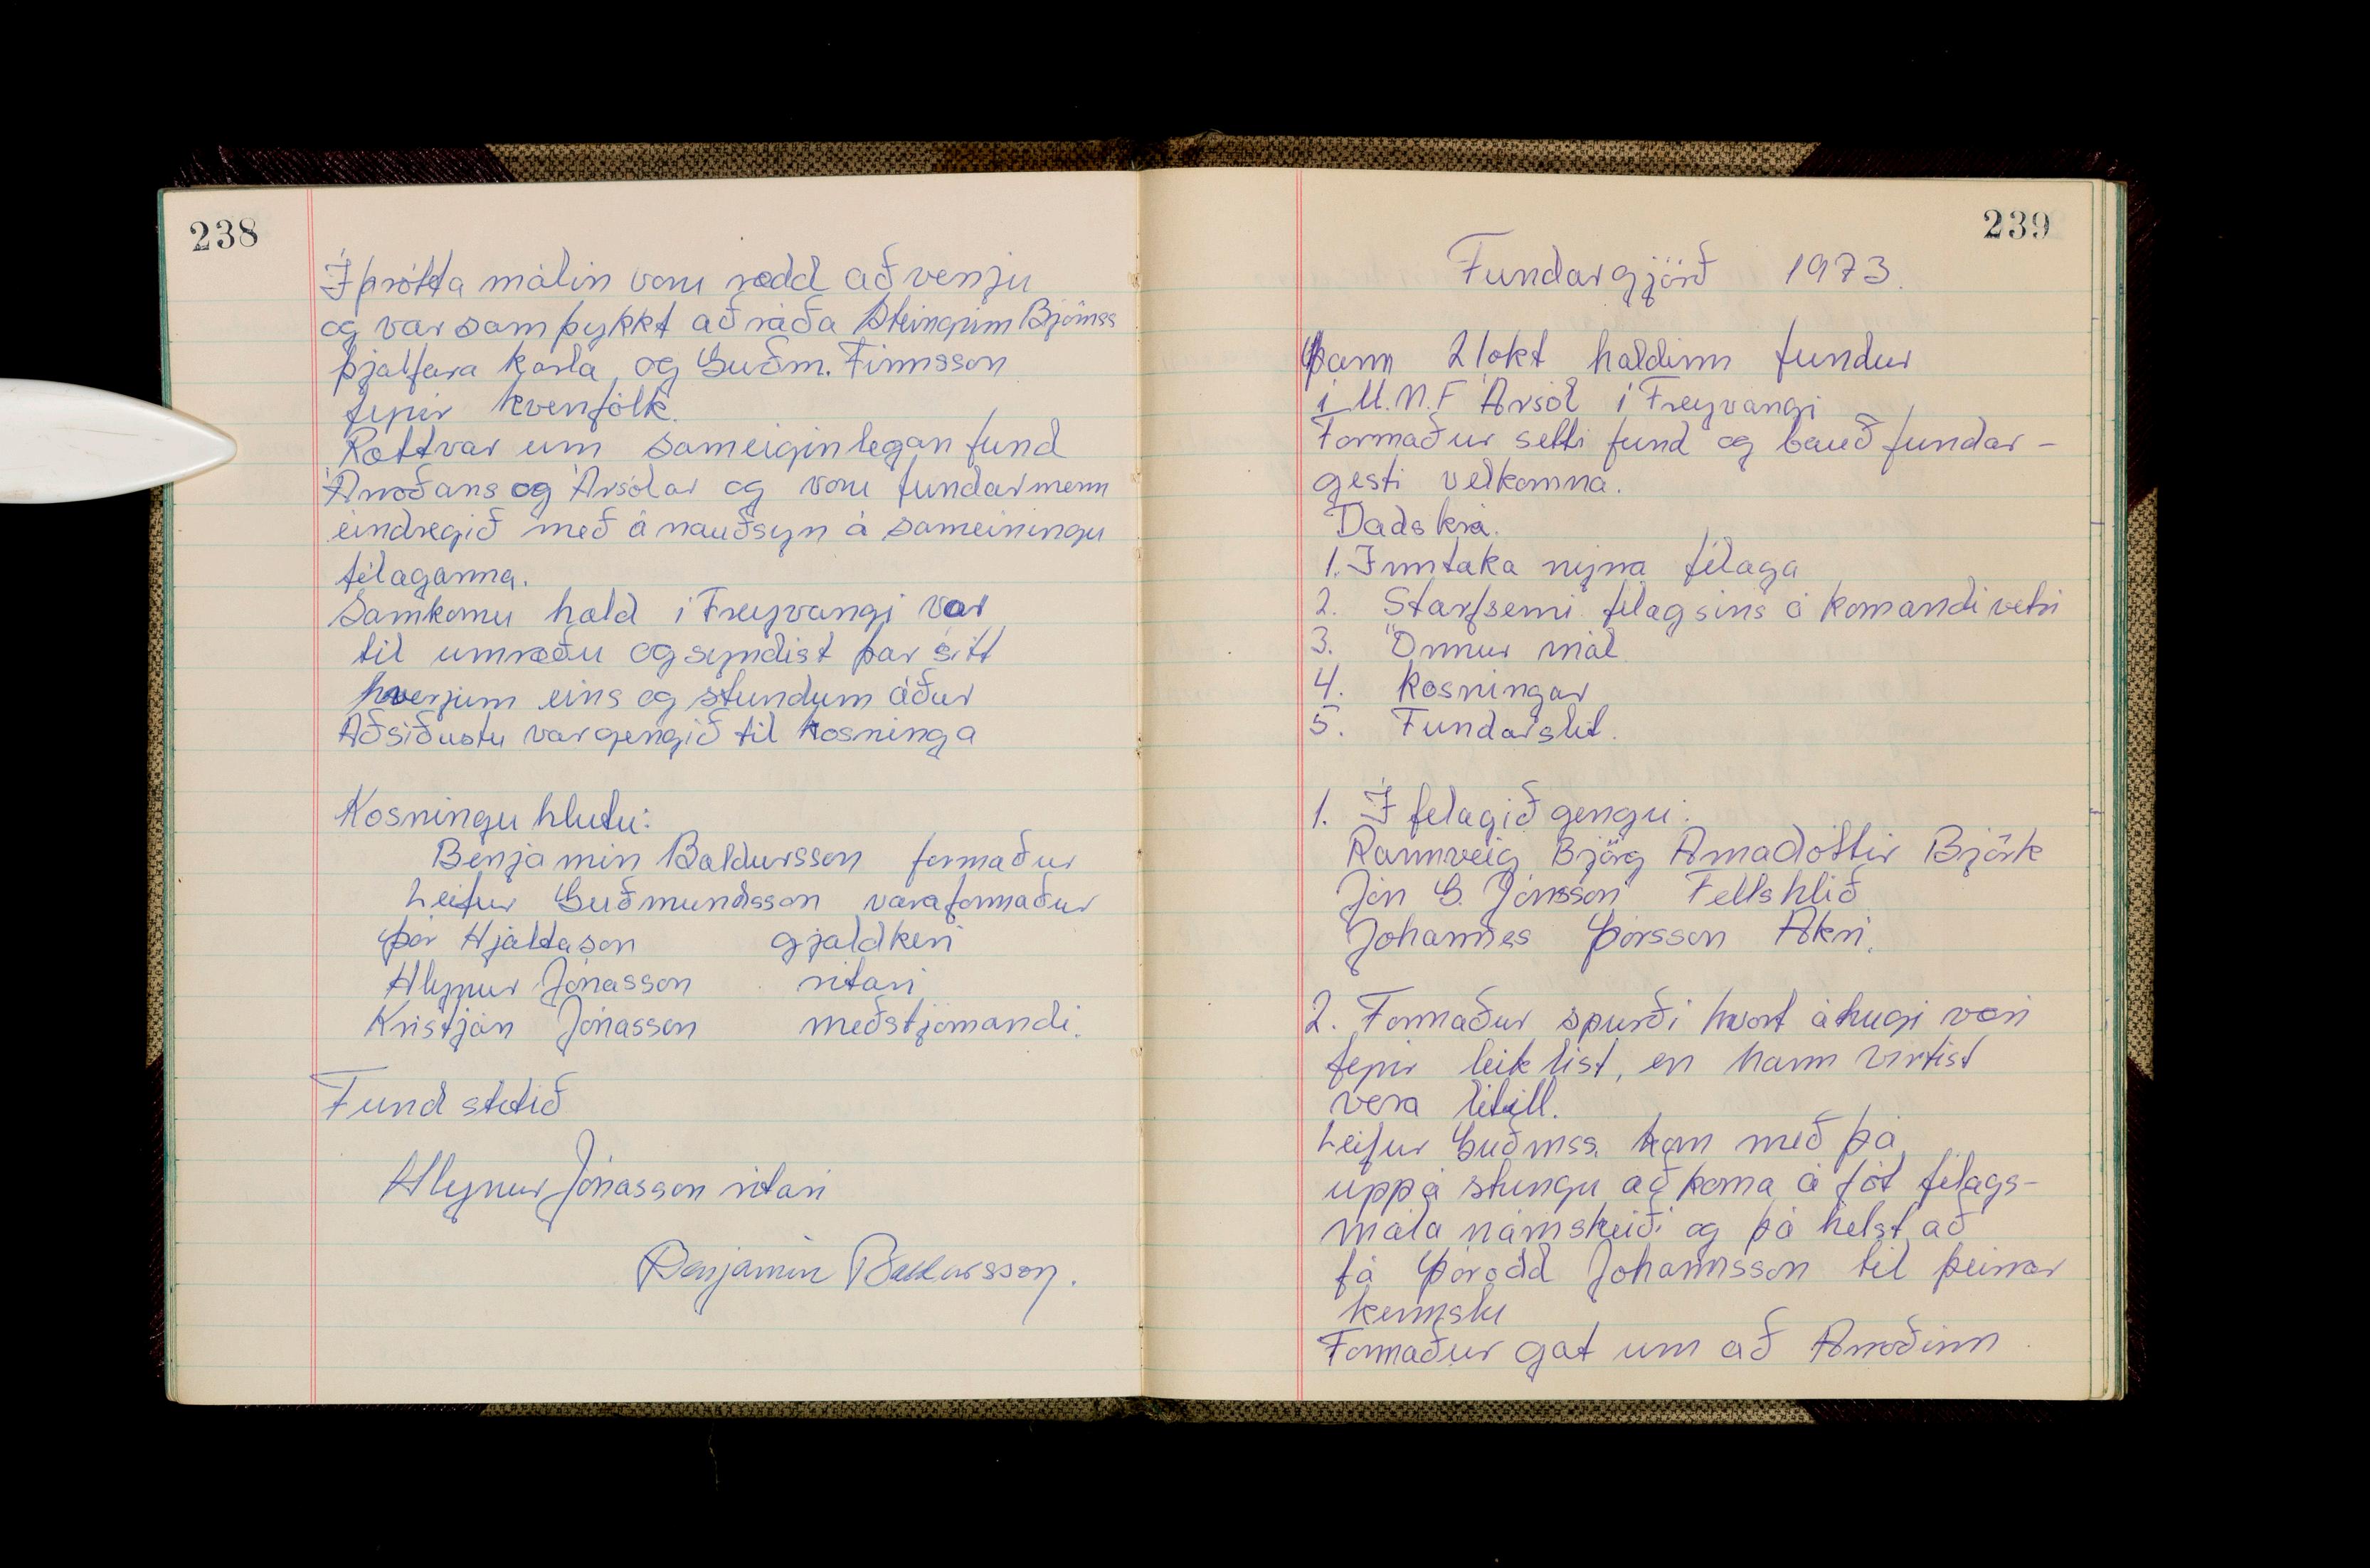 238
Íþrótta málin voru rædd að venju
og var samþykkt að ráða Steingrím Björnss
þjalfara karla og Guðm. Finnsson
fyrir kvenfólk.
Rætt var um sameiginlegan fund
Árroðans og Ársólar og voru fundarmenn
eindregið með á nauðsyn á sameiningu
félaganna.
Samkomu hald í Freyvangi var
til umræðu og syndist þar sitt
hverjum eins og stundum áður
Að síðustu var gengið til kosninga
Kosningu hlutu:
Benjamín Baldursson formaður
Leifur Guðmundsson varaformaður
Þór Hjáltason gjaldkeri
Hlynur Jónasson ritari
Kristján Jónasson meðstjórnandi.
Fund slitið
Hlynur Jónasson ritari
Benjamín Baldursson.
239
Fundargjörð 1973.
Þann 21 okt haldinn fundur
í U.M.F Ársól í Freyvangi
Formaður setti fund og bauð fundar-
gesti velkomna.
Dadskrá.
1. Inntaka nýrra félaga
2. Starfsemi félagsins á komandi vetri
3. Önnur mál
4. Kosningar
5. Fundarslit.
1. Í félagið gengu:
Rannveig Björg Árnadóttir Björk
Jón G. Jónsson Fellshlíð
Jóhannes Þórsson Akri.
2. Formaður spurði hvort áhugi væri
fyrir leiklist, en hann virtist
vera lítill.
Leifur Guðmss. kom með þá
uppá stungu að koma á fót félags-
mála námskeiði og þá helst að
fá Þórodd Jóhannsson til þeirrar
kennslu
Formaður gat um að Árroðinn